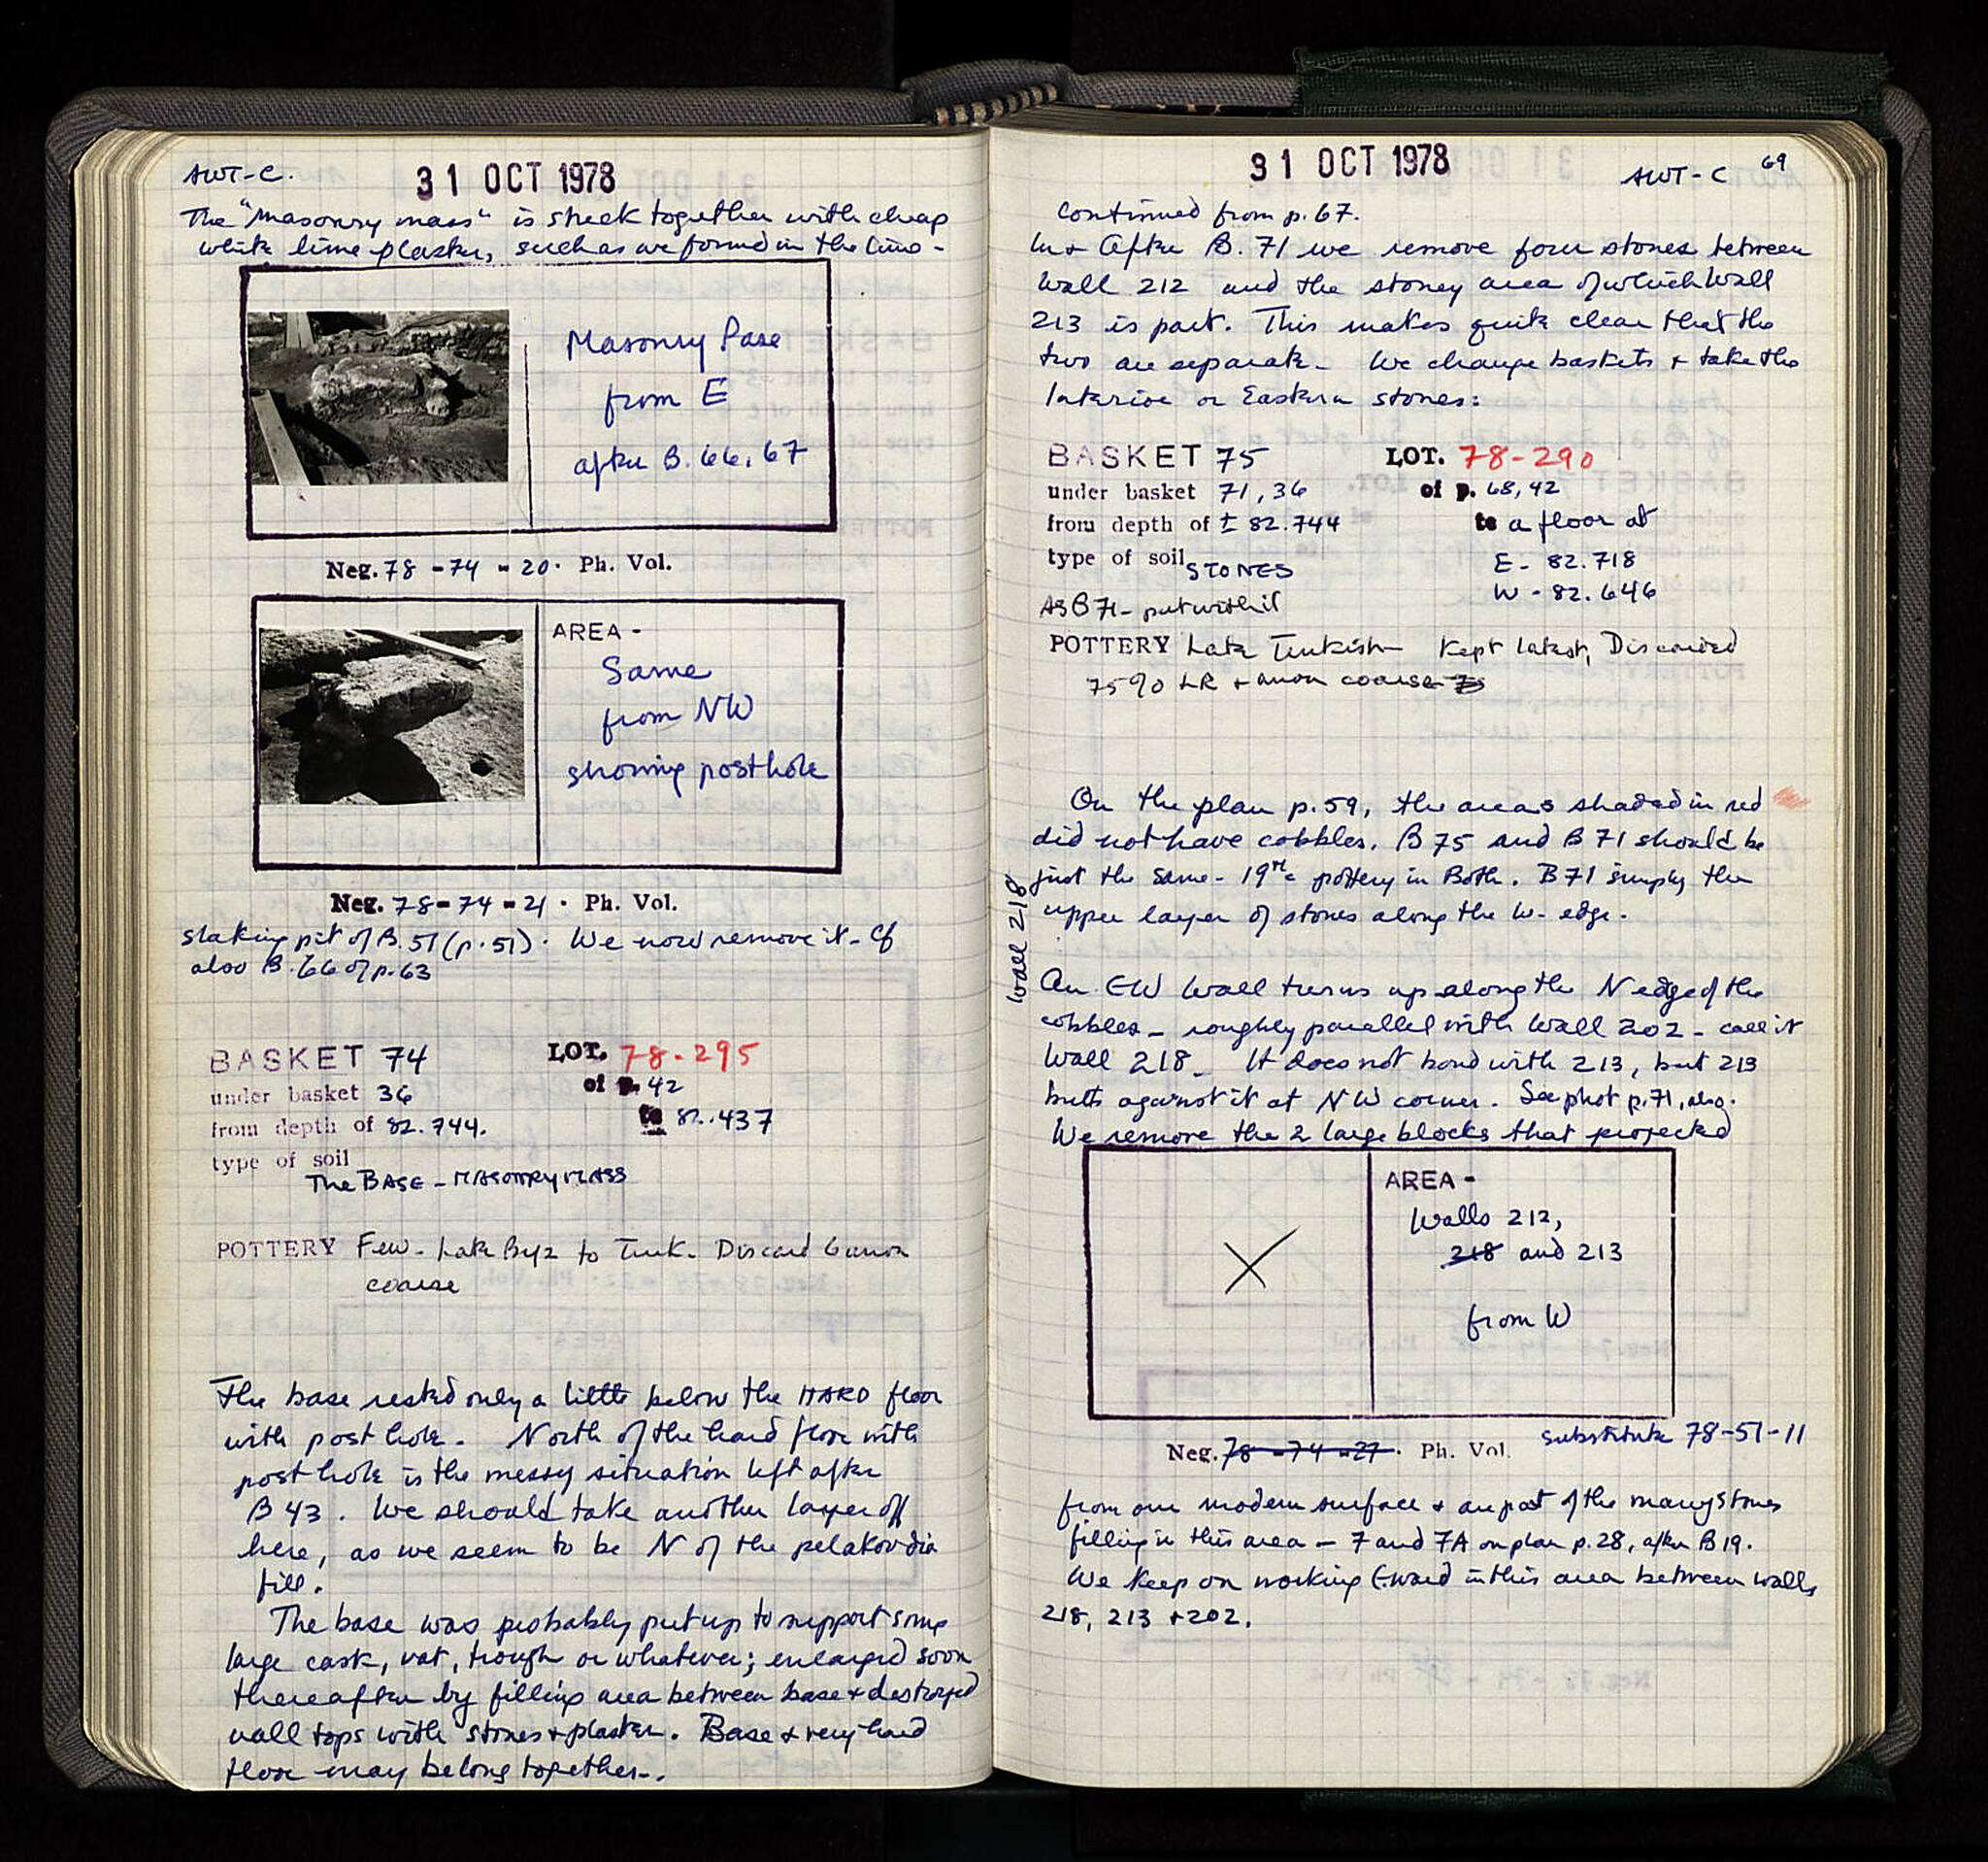 AWT-C.
31 OCT 1978
The "masonry mass" is stuck together with cheap
white lime plaster, such as we found in the lime-
Masonry Base
from E
after B. 66, 67
Neg. 78-74-20. Ph. Vol.
AREA-
Same
from NW
showing posthole
Neg. 78-74-21. Ph. Vol.
slaking pit of B.51 (p.51). We now remove it - cf
also B.66 of p.63
BASKET 74 LOT. 78-295
under basket 36 of p. 42
from depth of 82.744. to 82.437
type of soil
The BASE - MASONRY MASS
POTTERY Few - Late Byz to Turk. Discard 6 amor
coarse
The base rested only a little below the HARD floor
with post hole. North of the hard floor with
post hole is the messy situation left after
B 43. We should take another layer off
here, as we seem to be N of the pelakoudia
fill.
The base was probably put up to support some
large cask, vat, trough or whatever; enlarged soon
thereafter by filling area between base + destroyed
wall tops with stones + plaster. Base + very hard
floor may belong together.
31 OCT 1978
AWT-C 69
continued from p.67.
In + After B. 71 we remove four stones between
Wall 212 and the stoney area of which Wall
213 is part. This makes quite clear that the
two are separate. We change baskets + take the
Interior or Eastern stones:
BASKET 75 LOT. 78-290
under basket 71, 36 of p. 68, 42
from depth of ± 82.744 to a floor at
type of soil STONES E - 82.718
W - 82.646
As B 71 - put with it
POTTERY Late Turkish Kept latest, Discarded
75% LR + amor coarse
On the plan p.59, the areas shaded in red
did not have cobbles. B 75 and B 71 should be
just the same - 19th c pottery in Both. B71 simply the
upper layer of stones along the W. edge.
Wall 218
An EW Wall turns up along the N edge of the
cobbles - roughly parallel with Wall 202 - call it
Wall 218. It does not bond with 213, but 213
butts against it at NW corner. See phot p.71, also.
We remove the 2 large blocks that projected
AREA-
Walls 212,
218 and 213
from W
Neg. 78-74-27. Ph. Vol. substitute 78-51-11
from our modern surface + are part of the many stones
filling in this area - 7 and 7A on plan p.28, after B19.
We keep on working Eward in this area between walls
218, 213 + 202.